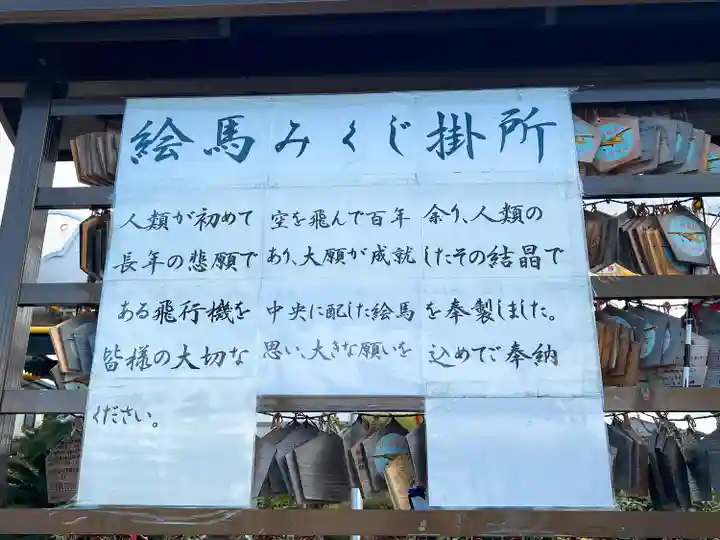 絵馬みくじ掛所
人類が初めて空を飛んで百年余り、人類の
長年の悲願であり、大願が成就したその結晶で
ある飛行機を中央に配した絵馬を奉製しました。
皆様の大切な思い、大きな願いを込めてご奉納
ください。